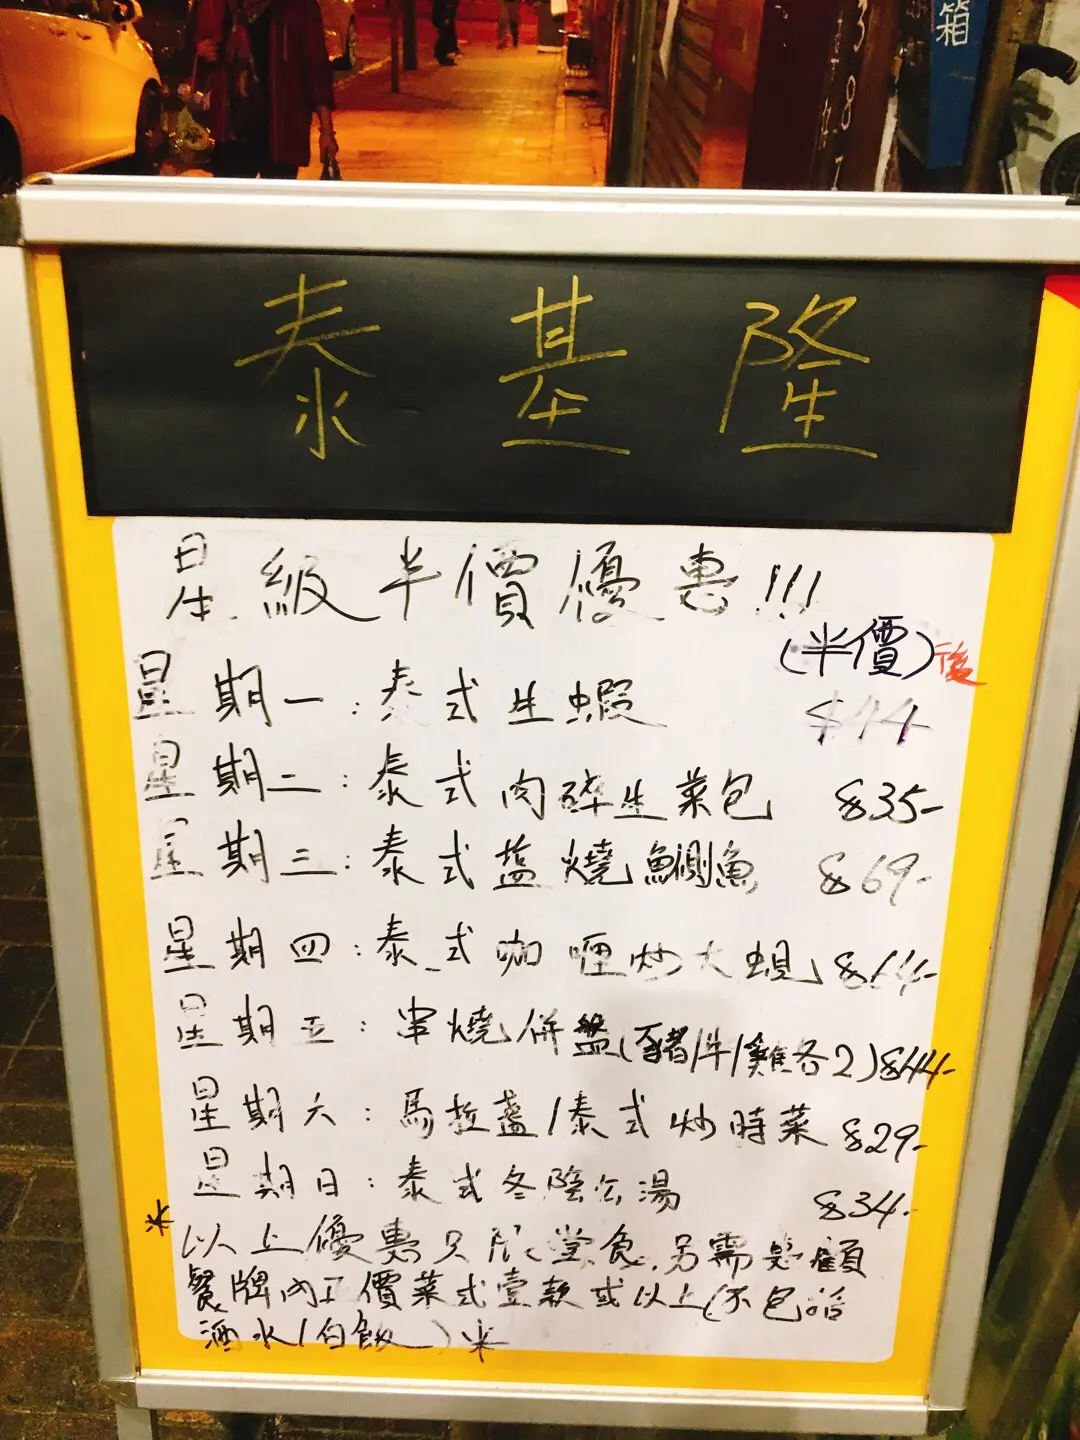 箱
泰基隆
星級半價優惠!!!
(半價)後
星期一:泰式生蝦 $44
星期二:泰式肉碎生菜包 $35-
星期三:泰式盐燒鰂魚 $69-
星期四:泰式咖喱炒大蜆 $64-
星期五:串燒併盤(豬/牛/雞各2)$44-
星期六:馬拉盞/泰式炒時菜 $29-
星期日:泰式冬陰公湯 $34-
*以上優惠只限堂食,另需惠顧
餐牌內正價菜式壹款或以上(不包括
酒水/白飯)*